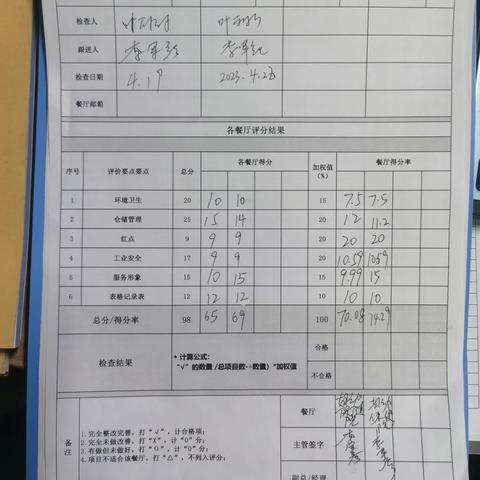 检查人
跟进人
检查日期 4.19 2023.4.23
餐厅邮箱
各餐厅评分结果
序号 评价要点要点 总分 各餐厅得分 加权值(%) 餐厅得分率
1 环境卫生 20 10 10 15 7.5 7.5
2 仓储管理 25 15 14 20 12 11.2
3 红点 9 9 9 20 20 20
4 工业安全 17 9 9 20 10.59 10.59
5 服务形象 15 10 15 15 9.99 15
6 表格记录表 12 12 12 10 10 10
总分/得分率 98 65 69 100 70.08 74.29
检查结果
* 计算公式:
"√" 的数量 /总项目数-·数量）*加权值
合格
不合格
备注
1.完全整改完善，打 "√" ，计合格项；
2.完全未做改善，打 "X" ，计 "0" 分；
3.有做但未做好，打 "O" ，计 "0" 分；
4.项目不适合该餐厅，打 "△" ，不列入评分；
餐厅
主管签字
副总/经理